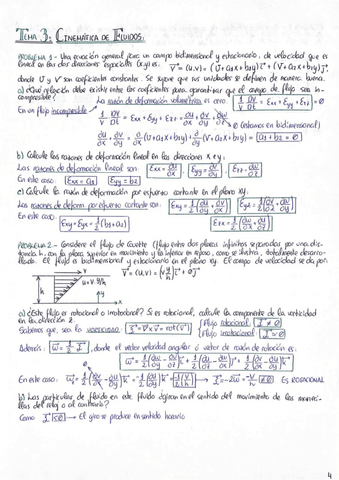 TEMA 3: CINEMÁTICA DE FLUIDOS.
PROBLEMA 1 - Una ecuación general para un campo bidimensional y estacionario, de velocidad que es
lineal en las dos direcciones espaciales (x,y) es: V⃗ = (u,v) = (U+a₁x+b₁y)i⃗ + (V+a₂x+b₂y)j⃗
donde U y V son coeficientes constantes. Se supone que sus unidades se definen de manera buena.
a) ¿Qué relación debe existir entre los coeficientes para garantizar que el campo de flujo sea in-
compresible?
En un flujo incompresible La razón de deformación volumétrica es cero. 1/V DV/Dt = Exx + Eyy + Ezz = 0
1/V DV/Dt = Exx + Eyy + Ezz = ∂u/∂x + ∂v/∂y + ∂w/∂z = 0 (estamos en bidimensional)
∂u/∂x + ∂v/∂y = ∂/∂x (U+a₁x+b₁y) + ∂/∂y (V+a₂x+b₂y) = a₁ + b₂ = 0
b) Calcule las razones de deformación lineal en las direcciones x e y:
Las razones de deformación lineal son: Exx = ∂u/∂x Eyy = ∂v/∂y Ezz = ∂w/∂z
En este caso: Exx = a₁ Eyy = b₂
c) Calcule la razón de deformación por esfuerzo cortante en el plano xy.
Las razones de deform por esfuerzo cortante son: Exy = 1/2(∂u/∂y + ∂v/∂x)
En este caso: Exy = Eyx = 1/2(b₁+a₂)
PROBLEMA 2 - Considere el flujo de Couette (flujo entre dos placas infinitas separadas por una dis-
tancia h, con la placa superior en movimiento y la inferior en reposo, como se ilustra, totalmente desarro-
llado. El flujo es bidimensional y estacionario en el plano xy. El campo de velocidad se da por:
V⃗ = (u,v) = (V y/h) i⃗ + 0 j⃗
V
h
u = V·y/h
a) ¿Este flujo es rotacional o irrotacional? Si es rotacional, calcule la componente de la vorticidad
en la dirección z.
Sabemos que, sea la vorticidad
Flujo rotacional
Flujo irrotacional
Además: , donde el vector velocidad angular ó vector de razón de rotación es:
En este caso: Es ROTACIONAL
b) ¿Las partículas de fluido en este fluido giran en el sentido del movimiento de las maneci-
llas del reloj o al contrario?
Como El giro se produce en sentido horario
4